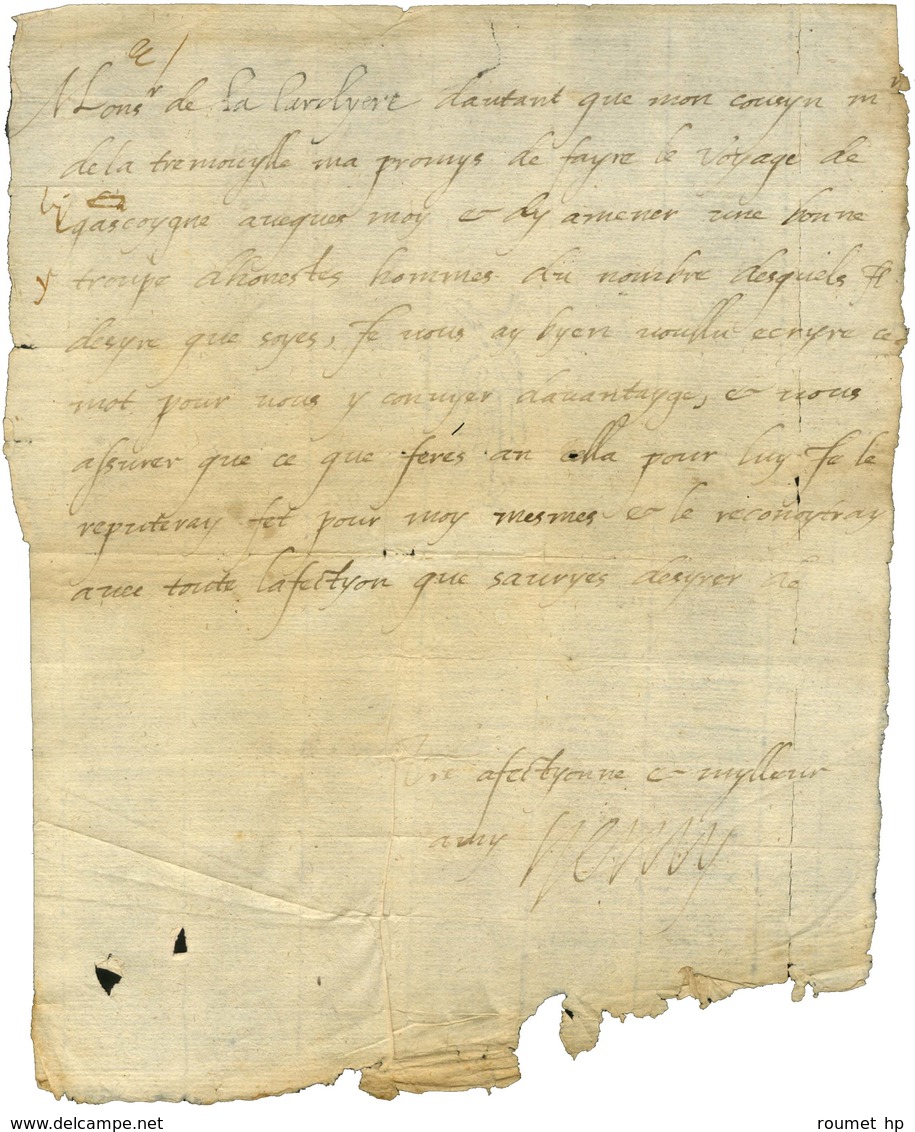 Monsr de la Carolyere dautant que mon cousyn mr
de la tremouylle ma promys de fayre le voyage de
gascoygne aueques moy & dy amener une bonne
troupe dhonestes hommes du nombre desquels Je
desyre que soyes, Je vous ay byen voullu ecryre ce
mot pour vous y conuyer dauantayge, & vous
assurer que ce que ferés an cella pour luy Je le
reputeray fet pour moy mesmes & le reconoytray
avec toute lafectyon que sauryes desyrer de
Vre afectyonne & mylleur
amy Henry
delcampe.net
roumet hp